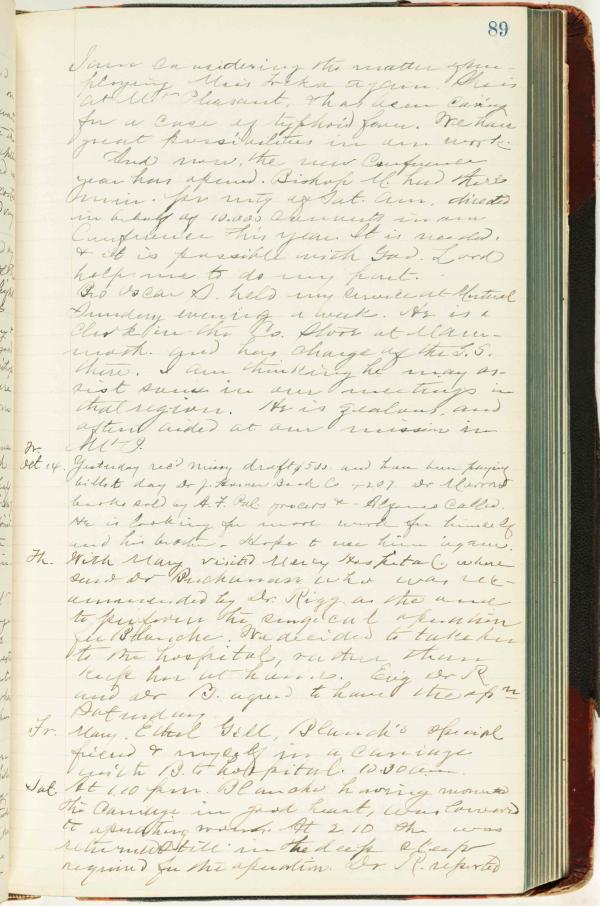 89
I am considering the matter of em-
ploying Miss again. She is
at Mt Pleasant, & has been caring
for a case of typhoid fever. We have
great possibilities in our work.
And now, the new Conference
year has opened. Bishop M. had there
Sat. directed
in behalf of 10.000 converts in our
Conference this year. It is needed.
& it is possible with God. Lord
help me to do my part.
Bro Oscar S. held my service at
Sunday evening a week. He is a
clerk in the Co. Store at Mam-
moth. and has charge of the S.S.
there. I am thinking he may as-
sist some in our meetings in
that region. He is zealous, and
often aided at our mission in
Mt P.
Fr.
Oct 14. Yesterday rec'd missy draft and have been paying
bills to day Dr J. Book Co Dr
books sold by & Alfonso called.
He is looking for more work for himself
and his brother. Hope to use him again.
Th. With Mary visited Mercy Hospital, where
saw Dr Buchanan who was rec-
ommended by Dr. Rigg as the one
to perform the surgical operation
on Blanche. We decided to take her
to the hospital, rather than
keep her at home. Evig Dr R
and Dr B. agreed to have the opn
Saturday.
Fr. Mary, Ethel Gill, Blanch's special
friend & myself, in a carriage
with B. to hospital. 10.30 a.m.
Sat. At 1.10 p.m. Blanche having
the carriage in good heart, was
to operating room. At 2 10 she was
returned still in the deep sleep
required for the operation. Dr. R. reported